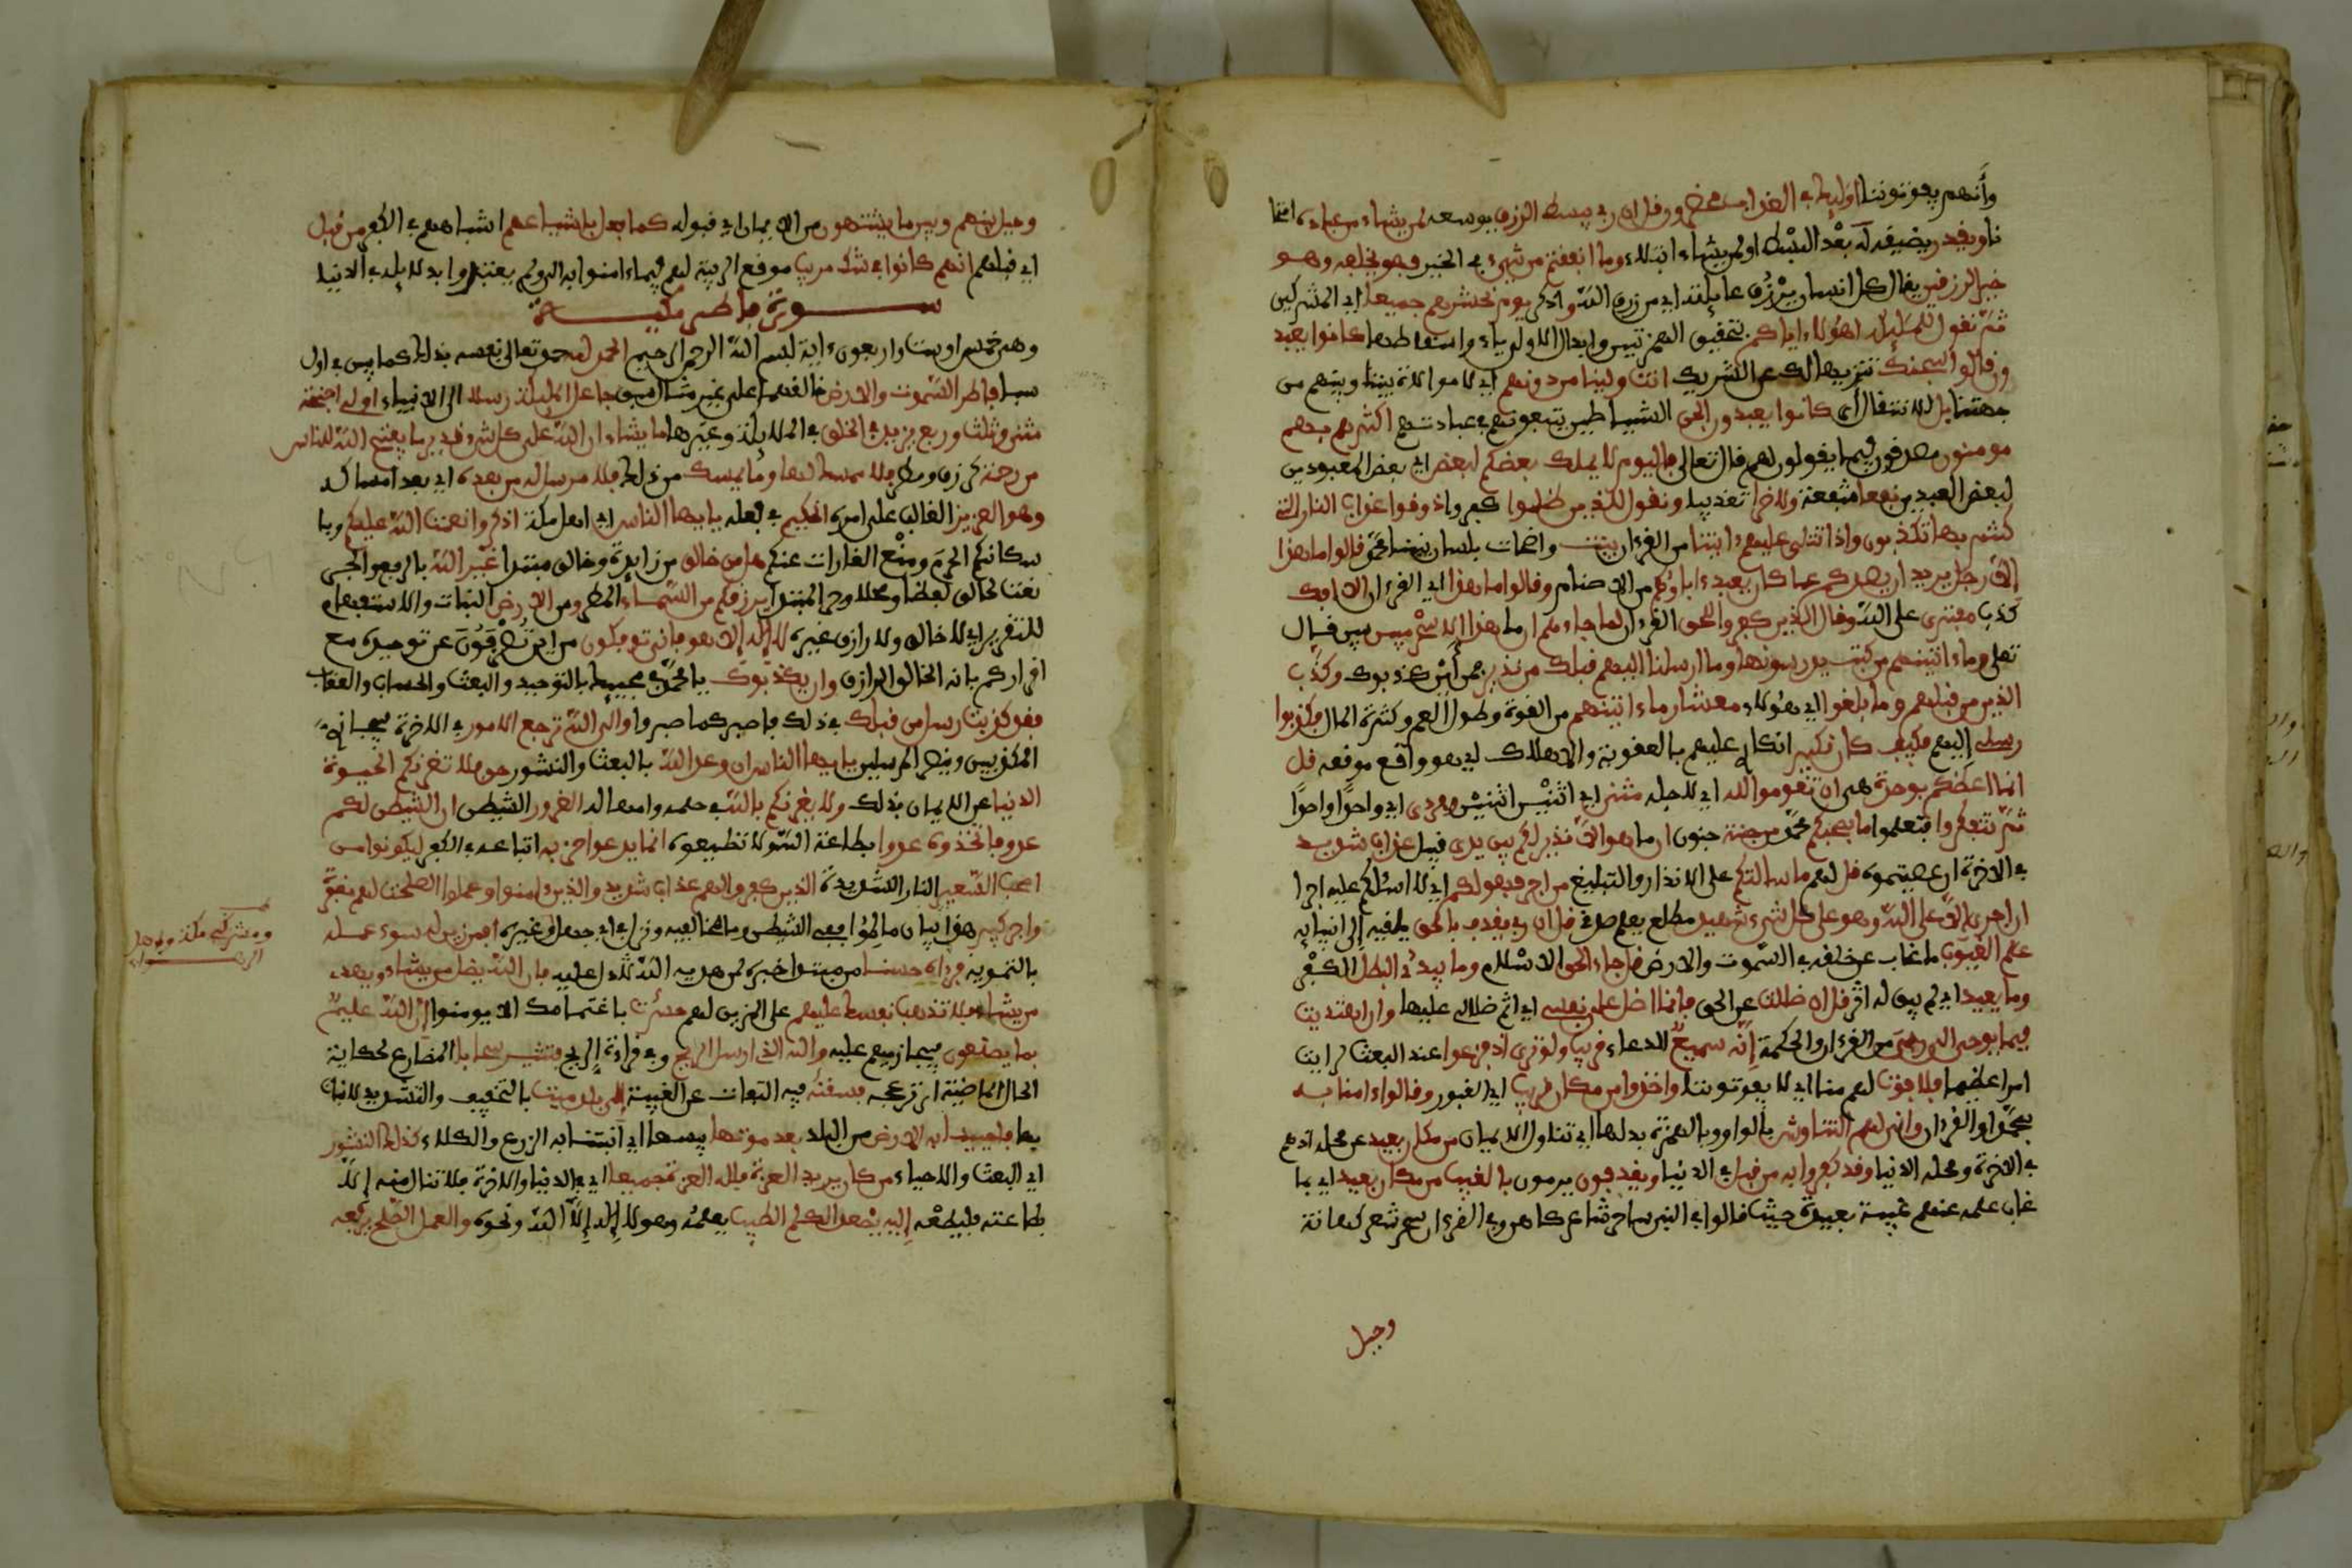 وأنهم يفوتوننا اوليك في العذاب محضرون قل ان ربي يبسط الرزق يوسعه لمن يشاء من عباده امتحا
نا ويقدر يضيقه له بعد البسط او لمن يشاء ابتلاء وما انفقتم من شيء في الخير فهو يخلفه وهو
خير الرزقين يقال كل انسان يرزق عايلته اي من رزق الله واذكر يوم نحشرهم جميعا اي المشركين
ثم نقول للمليكة اهؤلاء اياكم بتحقيق الهمزتين وابدال الاولى ياء واسقاطها كانوا يعبد
ون قالوا سبحنك تنزيها لك عن الشريك انت ولينا من دونهم اي لا موالاة بيننا وبينهم من
جهتنا بل للانتقال كانوا يعبدون الجن الشياطين يتبعونهم في عبادتهم اكثرهم بهم
مومنون مصدقون فيما يقولون لهم قال تعالى فاليوم لا يملك بعضكم لبعض اي بعض المعبودين
لبعض العبدين نفعا شفعة ولا ضرا تعذيبا ونقول للذين ظلموا كفروا ذوقوا عذاب النار التي
كنتم بها تكذبون واذا تتلى عليهم ءايتنا من القرءان بينت واضحات بلسان نبينا محمد قالوا ما هذا
إلا رجل يريد ان يصدكم عما كان يعبد ءاباؤكم من الاصنام وقالوا ما هذا اي القرءان الا افك
كذب مفترى على الله وقال الذين كفروا للحق القرءان لما جاءهم ان ما هذا إلا سحر مبين بين قال
تعلى وما ءاتينهم من كتب يدرسونها وما ارسلنا اليهم قبلك من نذير فمن أين كذبوك وكذب
الذين من قبلهم وما بلغوا اي هؤلاء معشار ما ءاتينهم من القوة وطول العمر وكثرة المال فكذبوا
رسلي إليهم فكيف كان نكير انكاري عليهم بالعقوبة والاهلاك اي هو واقع موقعه قل
انما اعظكم بوحدة هي ان تقوموا لله اي لاجله مثنى اي اثنين اثنين وفردى اي واحدا واحدا
ثم تتفكروا فتعلموا ما بصحبكم محمد من جنة جنون ان ما هو الا نذير لكم بين يدي قبل عذاب شديد
في الاخرة ان عصيتموه قل لهم ما سالتكم على الانذار والتبليغ من اجر فهو لكم اي لا اسئلكم عليه اجرا
ان اجري إلا على الله وهو على كل شيء شهيد مطلع يعلم صدقي قل ان ربي يقذف بالحق يلقيه إلى انبيايه
علم الغيوب ما غاب عن خلقه في السموت والارض قل جاء الحق الاسلام وما يبدئ البطل الكفر
وما يعيد اي لم يبق له اثر قل ان ضللت عن الحق فانما اضل على نفسي اي اثم ضلالي عليها وان اهتديت
فبما يوحي الي ربي من القرءان والحكمة إنه سميع للدعاء قريب ولو ترى اذ فزعوا عند البعث لرايت
امرا عظيما فلا فوت لهم منا اي لا يفوتوننا واخذوا من مكان قريب اي القبور وقالوا ءامنا به
بمحمد او القرءان وانى لهم التناوش بالواو وبالهمزة بدلها اي تناول الايمان من مكان بعيد عن محله اذ هم
في الاخرة ومحله الدنيا وقد كفروا به من قبل في الدنيا ويقذفون يرمون بالغيب من مكان بعيد اي بما
غاب علمه عنهم غيبة بعيدة حيث قالوا في النبي ساحر شاعر كاهن وفي القرءان سحر شعر كهانة
وحيل
وحيل بينهم وبين ما يشتهون من الايمان اي قبوله كما فعل باشياعهم اشباههم في الكفر من قبل
اي قبلهم انهم كانوا في شك مريب موقع الريبة لهم فيما ءامنوا به الان ولم يعتدوا بدلايله في الدنيا
سورة فاطر مكية
وهي خمس او ست واربعون ءاية بسم الله الرحمن الرحيم الحمد لله حمد تعالى نفسه بذلك كما بين في اول
سبا فاطر السموت والارض خالقهما على غير مثال سبق جاعل المليكة رسلا الى الانبياء اولي اجنحة
مثنى وثلث وربع يزيد في الخلق في الملايكة وغيرها ما يشاء ان الله على كل شيء قدير ما يفتح الله للناس
من رحمة كرزق ومطر فلا ممسك لها وما يمسك من ذلك فلا مرسل له من بعده اي بعد امساكه
وهو العزيز الغالب على امره الحكيم في فعله يايها الناس اي اهل مكة اذكروا نعمت الله عليكم با
سكانكم الحرم ومنع الغارات عنكم هل من خالق من زايدة وخالق مبتدا غير الله بالرفع والجر
نعت لخالق لفظا ومحلا وخبر المبتدا يرزقكم من السماء المطر ومن الارض النبات والاستفهام
للتقرير اي لا خالق ولا رازق غيره لا إله إلا هو فانى توفكون من اين تصرفون عن توحيده مع
اقراركم بانه الخالق الرازق وان يكذبوك يا محمد في مجييك بالتوحيد والبعث والحساب والعقاب
فقد كذبت رسل من قبلك في ذلك فاصبر كما صبروا والى الله ترجع الامور في الاخرة فيجازي
المكذبين وينصر المرسلين يايها الناس ان وعد الله بالبعث والنشور حق فلا تغرنكم الحيوة
الدنيا عن الايمان بذلك ولا يغرنكم بالله في حلمه وامهاله الغرور الشيطن ان الشيطن لكم
عدو فاتخذوه عدوا بطاعة الله ولا تطيعوه انما يدعوا حزبه اتباعه في الكفر ليكونوا من
اصحب السعير النار الشديدة الذين كفروا لهم عذاب شديد والذين ءامنوا وعملوا الصلحت لهم مغفرة
واجر كبير هذا بيان ما لموافقي الشيطن وما لمخالفيه ونزل في ابي جهل وغيره افمن زين له سوء عمله
بالتمويه فرءاه حسنا من مبتدا خبره كمن هداه الله لا دل عليه فان الله يضل من يشاء ويهدي
من يشاء فلا تذهب نفسك عليهم على المزين لهم حسرت باغتمامك الا يومنوا إن الله عليم
بما يصنعون فيجازيهم عليه والله الذي ارسل الريح وفي قراءة الريح فتثير سحابا المضارع لحكاية
الحال الماضية اي تزعجه فسقنه فيه التفات عن الغيبة إلى بلد ميت بالتخفيف والتشديد لا نبات
بها فاحيينا به الارض من البلد بعد موتها يبسها اي انبتنا به الزرع والكلاء كذلك النشور
اي البعث والاحياء من كان يريد العزة فلله العزة جميعا اي في الدنيا والاخرة فلا تنال منه إلا
بطاعته فليطعه إليه يصعد الكلم الطيب يعلمه وهو لا إله إلا الله ونحوه والعمل الصلح يرفعه
ومشركي مكة